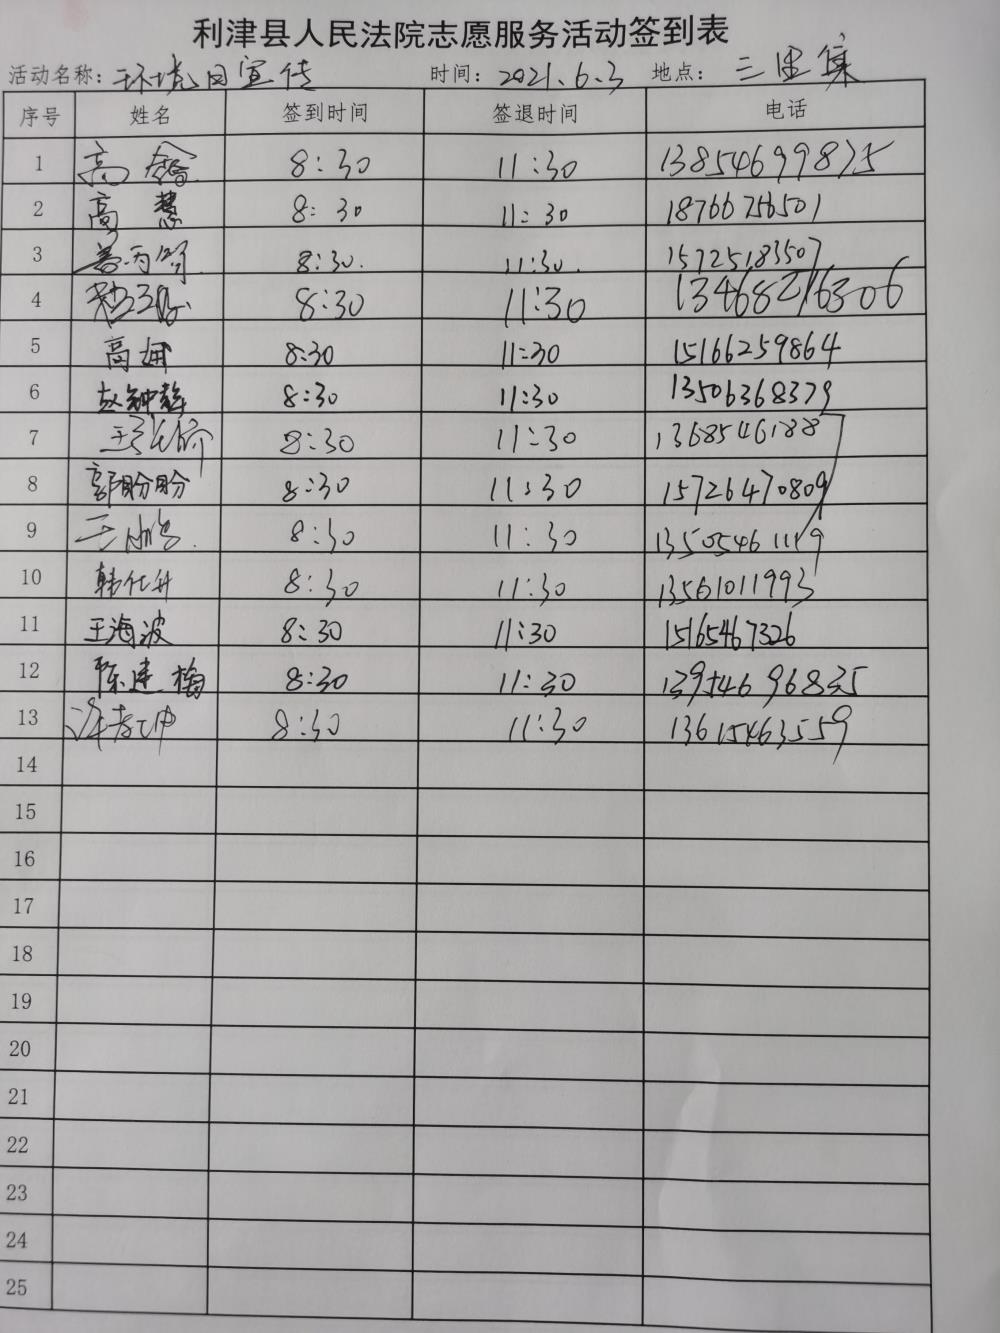 利津县人民法院志愿服务活动签到表
活动名称: 环境日宣传 时间: 2021.6.3 地点: 三里集
序号 姓名 签到时间 签退时间 电话
1 高 8:30 11:30 13854699875
2 高慧 8:30 11:30 18766756501
3 8:30. 11:30. 15725183507
4 8:30 11:30 13468216306
5 高姗 8:30 11:30 15166259864
6 赵钟静 8:30 11:30 13506368379
7 8:30 11:30 13685461887
8 郭盼盼 8:30 11:30 15726470809
9 王 8:30 11:30 13505461119
10 韩化升 8:30 11:30 13561011993
11 王海波 8:30 11:30 15165467326
12 陈建梅 8:30 11:30 13954696835
13 许 8:30 11:30 13615463559
14
15
16
17
18
19
20
21
22
23
24
25